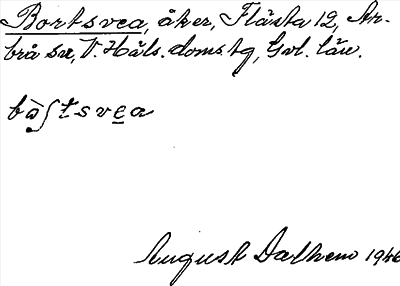 Bortsvea, åker, Flästa 12, Ar-
brå sn, V. Häls. doms.tg, Gvl. län.
August Dalhem 1946